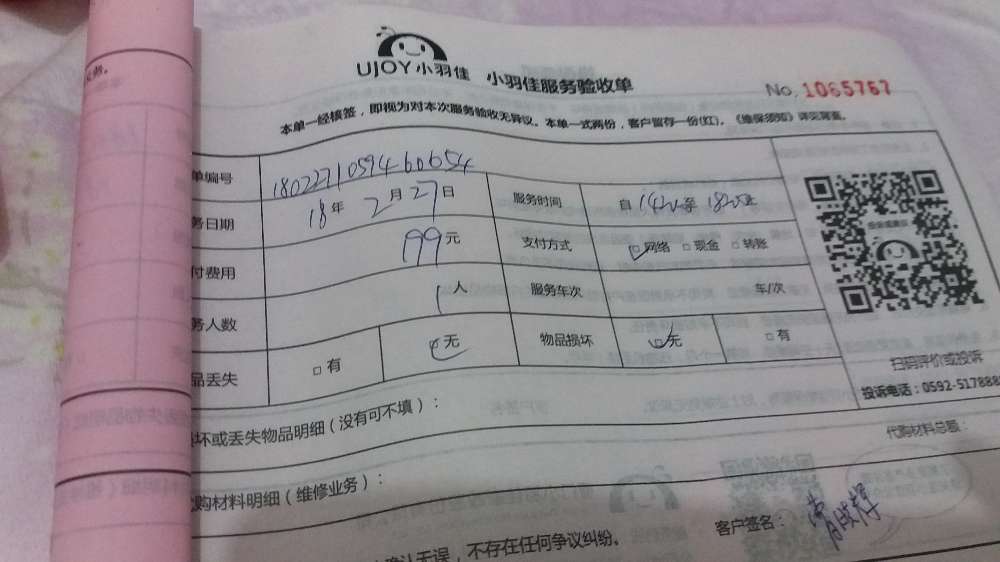 UJOY小羽佳 小羽佳服务验收单 No. 1065767
本单一经核签，即视为对本次服务验收无异议。本单一式两份，客户留存一份(红)。《维保须知》详见背面。
单编号 180227105946b654
务日期 18年 2月 27日 服务时间 自 至
付费用 199元 支付方式 □网络 □现金 □转账
务人数 1人 服务车次 车/次
品丢失 □有 无 物品损坏 无 □有
扫码评价或投诉
投诉电话：0592-517888
坏或丢失物品明细（没有可不填）：
代购材料总额：
购材料明细（维修业务）：
客户签名：
确认无误，不存在任何争议纠纷。